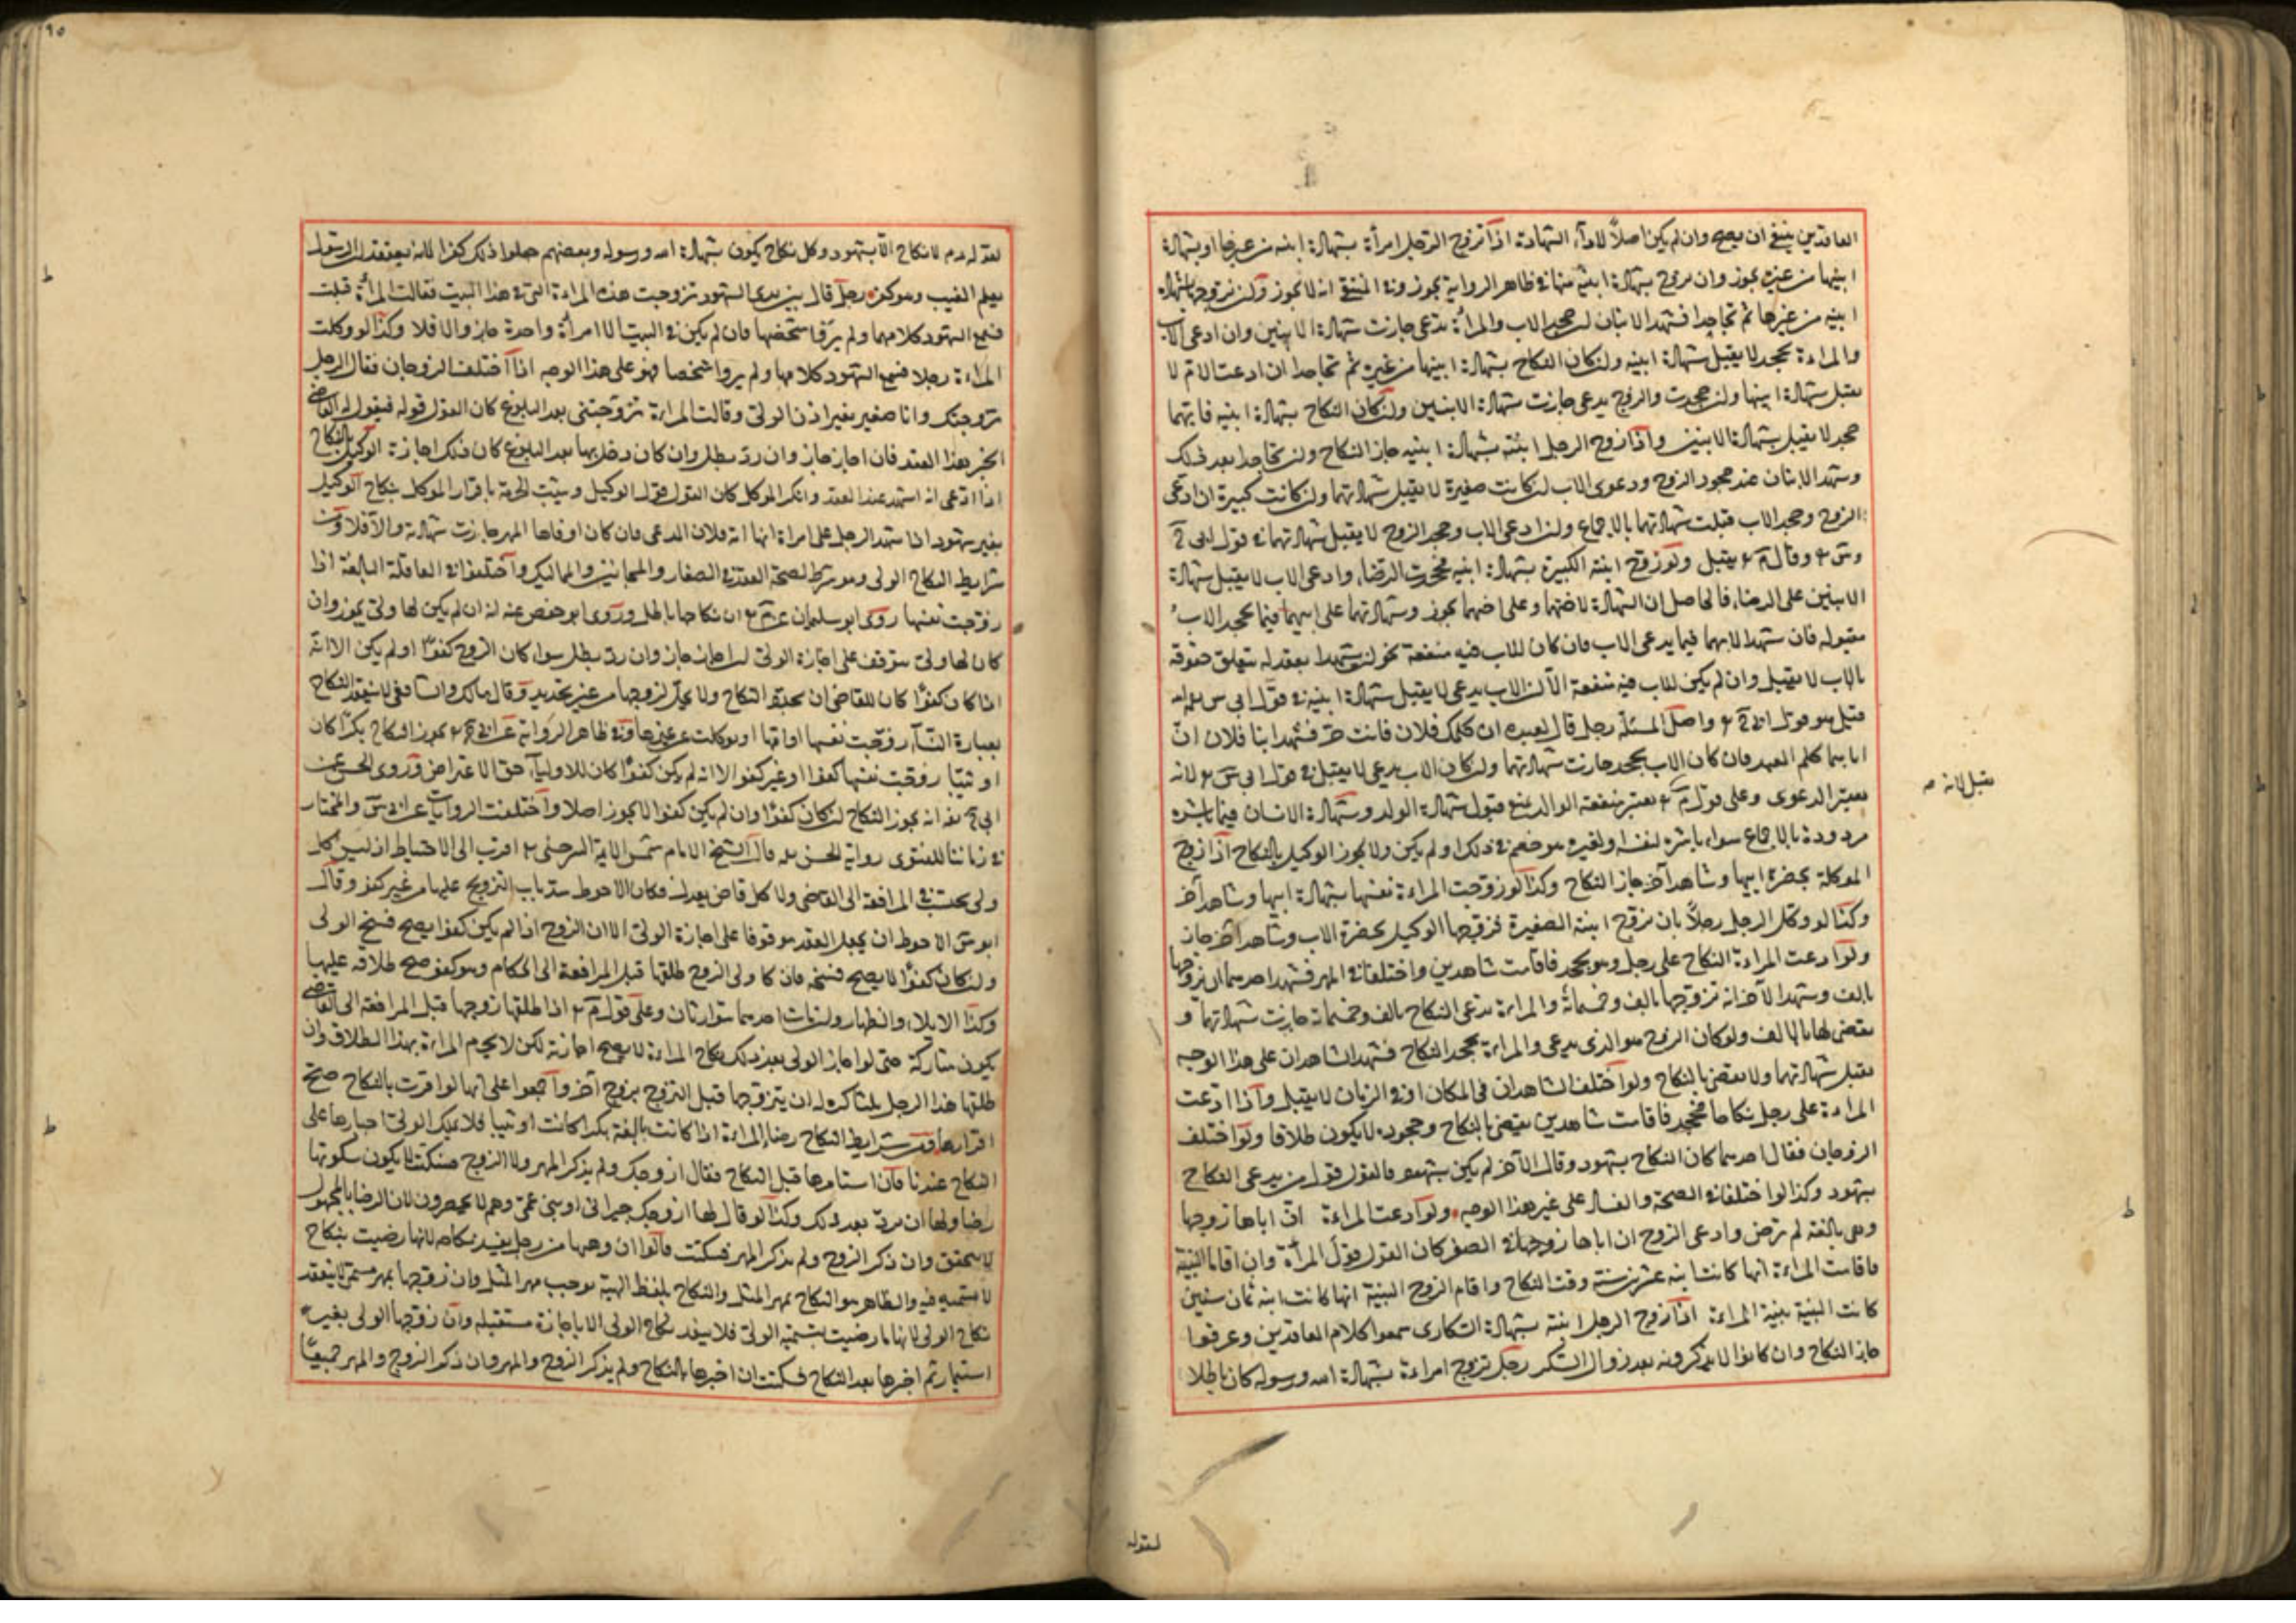 العاقدين ينبغي ان يصح وان لم يكن اصلاً لاداء الشهادة اذا تزوج الرجل امرأة بشهادة ابنيه من غيرها او بشهادة
ابنيها من غيره يجوز وان تزوج بشهادة ابنيه منها في ظاهر الرواية يجوز وفي المنتقى انه لا يجوز ولو تزوجها بشهادة
ابنيه من غيرها ثم تجاحدا فشهد الابنان ان جحد الاب والمرأة تدعي جازت شهادة الابنين وان ادعى الاب
والمراءة تجحد لا يقبل شهادة ابنيه ولو كان النكاح بشهادة ابنيها من غيره ثم تجاحدا ان ادعت الام لا
تقبل شهادة ابنيها وان جحدت والزوج يدعي جازت شهادة الابنين ولو كان النكاح بشهادة ابنيه فايهما
جحد لا يقبل شهادة الابنين واذا زوج الرجل ابنته بشهادة ابنيه جاز النكاح ولو تجاحدا بعد ذلك
وشهد الابنان عند جحود الزوج ودعوى الاب ان كانت صغيرة لا يقبل شهادتهما وان كانت كبيرة ان ادعى
الزوج وجحد الاب قبلت شهادتهما بالاجماع وان ادعى الاب وجحد الزوج لا يقبل شهادتهما في قول ابي ح
يقبل ولو زوج ابنته الكبيرة بشهادة ابنيه فجحدت الرضا وادعى الاب لا يقبل شهادة
الابنين على الرضا فالحاصل ان الشهادة لاختهما وعلى اختهما يجوز وشهادتهما على ابيهما فيما يجحد الاب
مقبولة فان شهدا لابيهما فيما يدعي الاب فان كان للاب فيه منفعة نحو ان شهدا بعقد له يتعلق حقوقه
بالاب لا يقبل وان لم يكن للاب فيه منفعة الا ان الاب يدعي لا يقبل شهادة ابنيه في قول ابي س
واصل المسئلة رجل قال لعبده ان كلمك فلان فانت حر فشهد ابنا فلان ان
اباهما كلم العبد فان كان الاب يجحد جازت شهادتهما وان كان الاب يدعي لا يقبل في قول ابي س لانه
يعتبر الدعوى وعلى قول م يعتبر منفعة الوالد لمنع قبول شهادة الولد وشهادة الانسان فيما باشره
مردودة بالاجماع سواء باشره لنفسه او لغيره هو خصم في ذلك او لم يكن ولا يجوز الوكيل بالنكاح اذا زوج
الموكلة بحضرة ابيها وشاهد آخر جاز النكاح وكذا لو زوجت المراءة نفسها بشهادة ابيها وشاهد آخر
وكذا لو وكل الرجل رجلاً بان يزوج ابنته الصغيرة فزوجها الوكيل بحضرة الاب وشاهد آخر جاز
ولو ادعت المراءة النكاح على رجل وهو يجحد فاقامت شاهدين واختلفا في المهر فشهد احدهما انه تزوجها
بالف وشهد الآخر انه تزوجها بالف وخمسمائة والمراءة تدعي النكاح بالف وخمسمائة جازت شهادتهما و
يقضى لها بالالف ولو كان الزوج هو الذي يدعي والمراءة تجحد النكاح فشهد الشاهدان على هذا الوجه
يقبل شهادتهما ولا يقضى بالنكاح ولو اختلف الشاهدان في المكان او في الزمان لا يقبل واذا ادعت
المراءة على رجل نكاحا فجحد فاقامت شاهدين يقضى بالنكاح وجحوده لا يكون طلاقا ولو اختلف
الزوجان فقال احدهما كان النكاح بشهود وقال الآخر لم يكن بشهود فالقول قول من يدعي النكاح
بشهود وكذا لو اختلفا في الصحة والفساد على غير هذا الوجه ولو ادعت المراءة ان اباها زوجها
وهي بالغة لم ترض وادعى الزوج ان اباها زوجها في الصغر كان القول قول المرأة وان اقاما البينة
فاقامت المراءة انها كانت ابنة عشرين سنة وقت النكاح واقام الزوج البينة انها كانت ابنة ثمان سنين
كانت البينة بينة المراءة اذا زوج الرجل ابنته بشهادة السكارى سمعوا كلام العاقدين وعرفوا
جاز النكاح وان كانوا لا يذكرونه بعد زوال السكر رجل تزوج امراءة بشهادة الله ورسوله كان باطلا
يقبل لانه صح
لقوله
٩٥
لقوله عم لا نكاح الا بشهود وكل نكاح يكون بشهادة الله ورسوله وبعضهم جعلوا ذلك كفرا لانه يعتقد ان الرسول
يعلم الغيب وهو كفر رجل قال بين يدي الشهود تزوجت هذه المراءة التي في هذا البيت فقالت المرأة قبلت
فسمع الشهود كلامهما ولم يروا شخصها فان لم يكن في البيت الا امرأة واحدة جاز والا فلا وكذا لو وكلت
المراءة رجلا فسمع الشهود كلامها ولم يروا شخصا فهو على هذا الوجه اذا اختلف الزوجان فقال الرجل
تزوجتك وانا صغير بغير اذن الولي وقالت المراءة تزوجتني بعد البلوغ كان القول قوله فيقول له القاضي
اتجيز هذا العقد فان اجاز جاز وان رد بطل وان كان دخل بها بعد البلوغ كان ذلك اجازة الوكيل بالنكاح
اذا ادعى انه اشهد عند العقد وانكر الموكل كان القول قول الوكيل ويثبت الحرمة باقرار الموكل بنكاح الوكيل
بغير شهود اذا شهد الرجل على امراة انها امة فلان المدعي فان كان اوفاها المهر جازت شهادته والا فلا ومن
شرايط النكاح الولي وهو شرط لصحة العقد في الصغار والمجانين والمماليك واختلفوا في العاقلة البالغة اذا
زوجت نفسها روى ابو سليمان عن م ان نكاحها باطل وروى ابو حفص عنه انه ان لم يكن لها ولي يجوز وان
كان لها ولي يتوقف على اجازة الولي ان اجاز جاز وان رد بطل سواء كان الزوج كفوا او لم يكن الا انه
اذا كان كفوا كان للقاضي ان يجدد النكاح ولا يحل لزوجها من غير تجديد وقال مالك والشافعي لا ينعقد النكاح
بعبارة النساء زوجت نفسها او امتها او توكلت عن غيرها وفي ظاهر الرواية عن ابي ح يجوز النكاح بكرا كان
او ثيبا زوجت نفسها كفوا او غير كفو الا انه لم يكن كفوا كان للاولياء حق الاعتراض وروى الحسن عن
ابي ح انه يجوز النكاح ان كان كفوا وان لم يكن كفوا لا يجوز اصلا واختلفت الروايات عن ابي س والمختار
في زماننا للفتوى رواية الحسن قال الشيخ الامام شمس الايمة السرخسي اقرب الى الاحتياط اذ ليس كل
ولي يحتسب في المرافعة الى القاضي ولا كل قاض يعدل فكان الاحوط سد باب التزويج عليها من غير كفو وقال
ابو س الاحوط ان يجعل العقد موقوفا على اجازة الولي الا ان الزوج اذا لم يكن كفوا يصح فسخ الولي
وان كان كفوا لا يصح فسخه طلقها قبل المرافعة الى الحكام وهو كفو صح طلاقه عليها
وكذا الايلاء والظهار وان مات احدهما يتوارثان وعلى قول م اذا طلقها زوجها قبل المرافعة الى القاضي
يكون متاركة حتى لو اجاز الولي بعد ذلك نكاح المراءة لا يصح اجازته لكن لا يحرم المراءة بهذا الطلاق وان
طلقها هذا الرجل ثلثا كره له ان يتزوجها قبل التزوج بزوج آخر واجمعوا على انها لو اقرت بالنكاح صح
اقرارها ومن شرايط النكاح رضا المراءة اذا كانت بالغة بكرا كانت او ثيبا فلا يملك الولي اجبارها على
النكاح عندنا فان استامرها قبل النكاح فقال ازوجك ولم يذكر المهر ولا الزوج فسكتت لا يكون سكوتها
رضا ولها ان ترد بعد ذلك وكذا لو قال لها ازوجك جيراني او بني عمي وهم لا يحصرون لان الرضا بالمجهول
لا يتحقق وان ذكر الزوج ولم يذكر المهر فسكتت قالوا ان وهبها من رجل ينفذ نكاحه لانها رضيت بنكاح
لا تسمية فيه والظاهر هو النكاح بمهر المثل والنكاح بلفظ الهبة يوجب مهر المثل وان زوجها بمهر مسمى لا ينعقد
نكاح الولي لانها ما رضيت بتسمية الولي فلا ينفذ نكاح الولي الا باجازة مستقبلة وان زوجها الولي بغير
استيمار ثم اخبرها بعد النكاح فسكتت ان اخبرها بالنكاح ولم يذكر الزوج والمهر وان ذكر الزوج والمهر جميعا